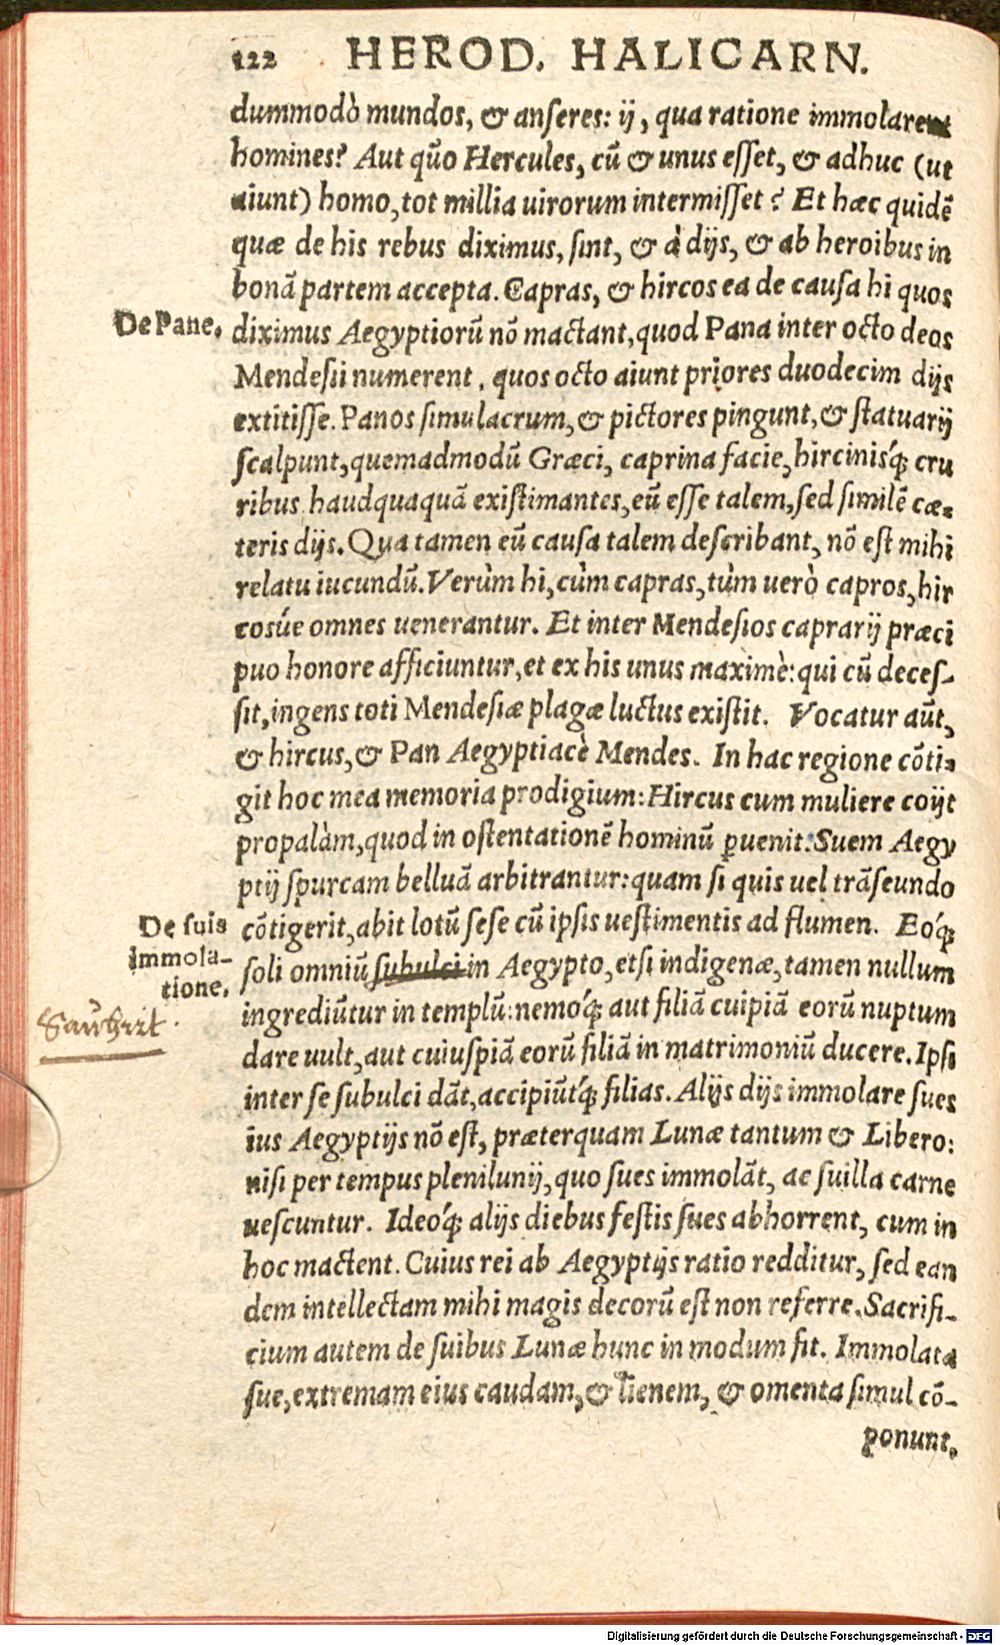 122 HEROD. HALICARN.
dummodò mundos, & anseres: ij, qua ratione immolarent
homines? Aut quõ Hercules, cũ & unus esset, & adhuc (ut
aiunt) homo, tot millia uirorum intermisset? Et hæc quidẽ
quæ de his rebus diximus, sint, & à dijs, & ab heroibus in
bonã partem accepta. Capras, & hircos ea de causa hi quos
De Pane.
diximus Aegyptiorũ nõ mactant, quod Pana inter octo deos
Mendesii numerent, quos octo aiunt priores duodecim dijs
extitisse. Panos simulacrum, & pictores pingunt, & statuarij
scalpunt, quemadmodũ Græci, caprina facie, hircinisq́; cru
ribus haudquaquã existimantes, eũ esse talem, sed similẽ cæ-
teris dijs. Qua tamen eũ causa talem describant, nõ est mihi
relatu iucundũ. Verùm hi, cùm capras, tùm uerò capros, hir
cosúe omnes uenerantur. Et inter Mendesios caprarij præci
puo honore afficiuntur, et ex his unus maximè: qui cũ deces-
sit, ingens toti Mendesiæ plagæ luctus existit. Vocatur aũt,
& hircus, & Pan Aegyptiacè Mendes. In hac regione cõti-
git hoc mea memoria prodigium: Hircus cum muliere coijt
propalàm, quod in ostentationẽ hominũ ꝑuenit. Suem Aegy
ptij spurcam belluã arbitrantur: quam si quis uel trãseundo
De suis
immola-
tione.
cõtigerit, abit lotũ sese cũ ipsis uestimentis ad flumen. Eoq́;
soli omniũ subulci in Aegypto, etsi indigenæ, tamen nullum
Sauhirt.
ingrediũtur in templũ: nemoq́; aut filiã cuipiã eorũ nuptum
dare uult, aut cuiuspiã eorũ filiã in matrimoniũ ducere. Ipsi
inter se subulci dãt, accipiũtq́; filias. Alijs dijs immolare sues
ius Aegyptijs nõ est, præterquam Lunæ tantum & Libero:
nisi per tempus plenilunij, quo sues immolãt, ac suilla carne
uescuntur. Ideoq́; alijs diebus festis sues abhorrent, cum in
hoc mactent. Cuius rei ab Aegyptijs ratio redditur, sed ean
dem intellectam mihi magis decorũ est non referre. Sacrifi-
cium autem de suibus Lunæ hunc in modum fit. Immolata
sue, extremam eius caudam, & lienem, & omenta simul cõ-
ponunt,
Digitalisierung gefördert durch die Deutsche Forschungsgemeinschaft - DFG